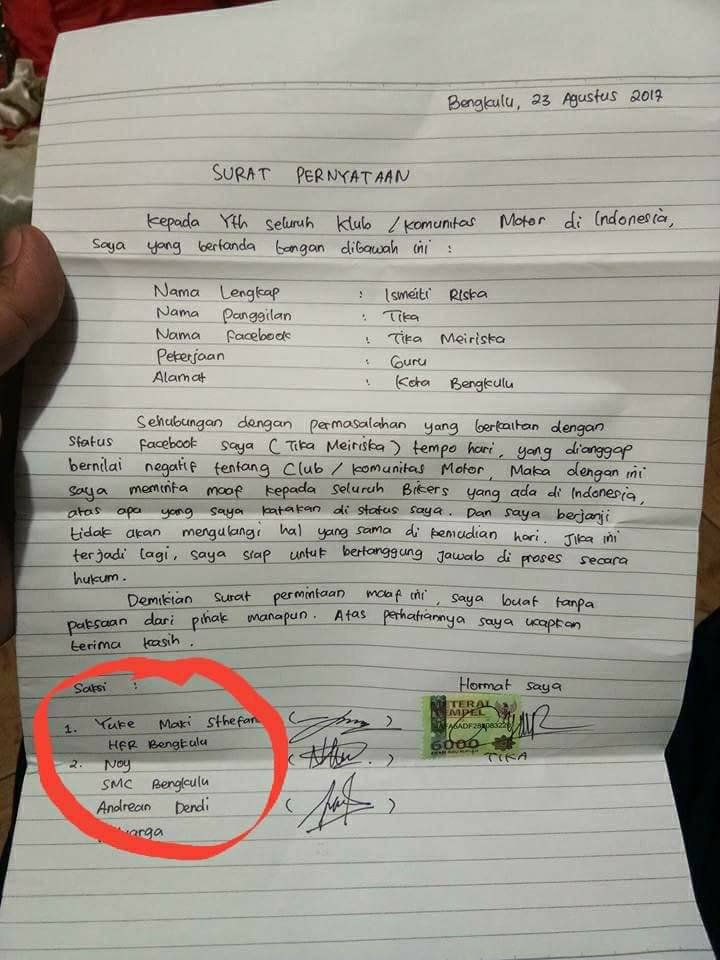 Bengkulu, 23 Agustus 2017
SURAT PERNYATAAN
Kepada Yth seluruh Klub / Komunitas Motor di Indonesia,
Saya yang bertanda tangan dibawah ini :
Nama Lengkap : Ismeiti Riska
Nama Panggilan : Tika
Nama Facebook : Tika Meiriska
Pekerjaan : Guru
Alamat : Kota Bengkulu
Sehubungan dengan permasalahan yang berkaitan dengan
status facebook saya ( Tika Meiriska ) tempo hari, yang dianggap
bernilai negatif tentang Club / Komunitas Motor, Maka dengan ini
saya meminta maaf kepada seluruh Bikers yang ada di Indonesia,
atas apa yang saya katakan di status saya. Dan saya berjanji
tidak akan mengulangi hal yang sama di kemudian hari. Jika ini
terjadi lagi, saya siap untuk bertanggung jawab di proses secara
hukum.
Demikian surat permintaan maaf ini, saya buat tanpa
paksaan dari pihak manapun. Atas perhatiannya saya ucapkan
terima kasih.
Saksi : Hormat saya
1. Yuke Maki Sthefan
HFR Bengkulu
2. Noy
SMC Bengkulu
Andrean Dendi
TERAI
EMPEL
6000
TIKA